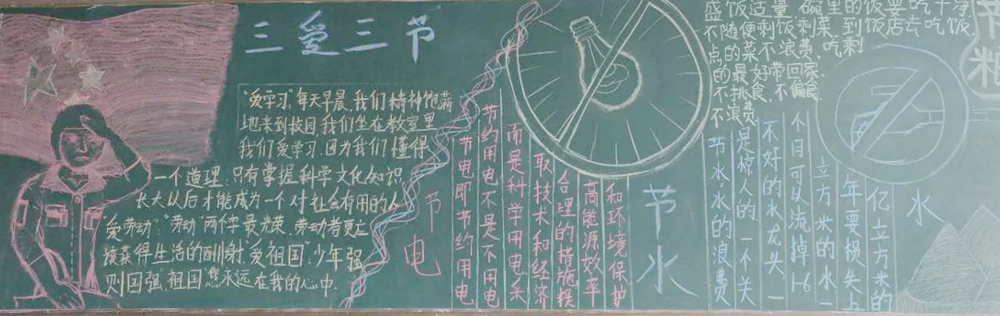 三爱三节
"爱学习"每天早晨,我们精神饱满
地来到校园,我们坐在教室里
我们爱学习,因为我们懂得
一个道理,只有掌握科学文化知识
长大以后才能成为一个对社会有用的人
"爱劳动""劳动"两件字最光荣,劳动者更应
该获得生活的酬谢,爱祖国,少年强
则国强,祖国您永远在我的心中.
节电
节电即节约用电
节约用电不是不用电
而是科学用电采
取技术和经济
合理的措施提
高能源效率
和环境保护
节水
节水,水的浪费
是惊人的,一不关
不好的水龙头一
个月可以流掉1-6
立方米的水一
年要损失上
亿立方米的
水
节粮
干净饭
吃
要去吃
饭店
的饭
里的到剩
碗菜,吃
量剩费,回家
适剩浪带偏食
饭便菜好食
盛随的最挑费
不点的不浪